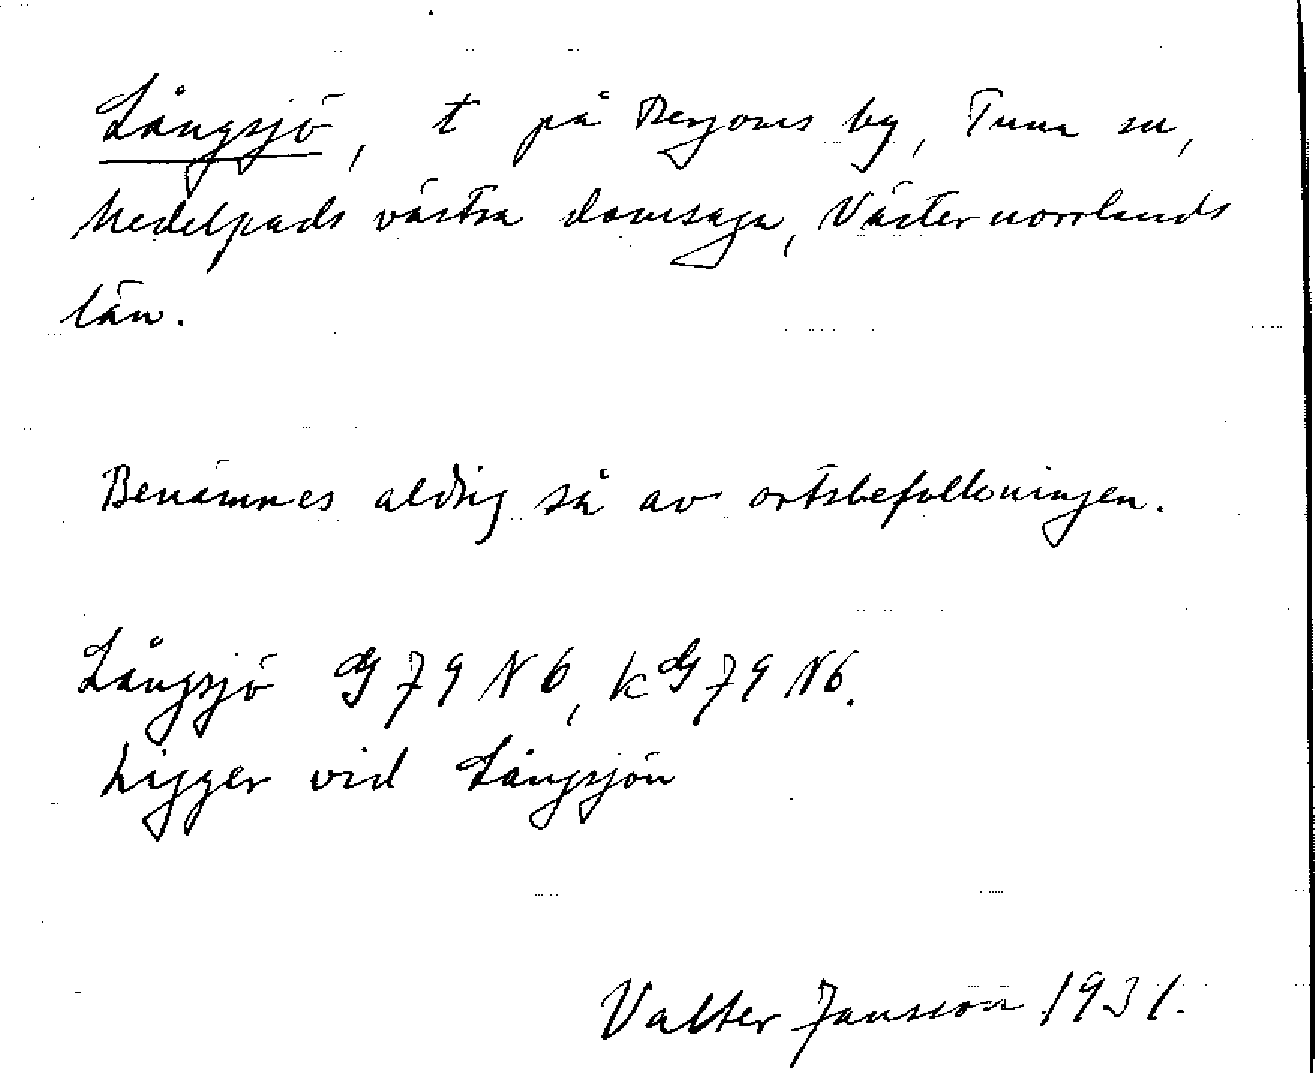 Långsjö, t på Bergoms by, Tuna sn,
Medelpads västra domsaga, Västernorrlands
län.
Benämnes aldrig så av ortsbefolkningen.
Långsjö G 79 N 6, kG 79 N6.
Ligger vid Långsjön
Valter Jansson 1931.